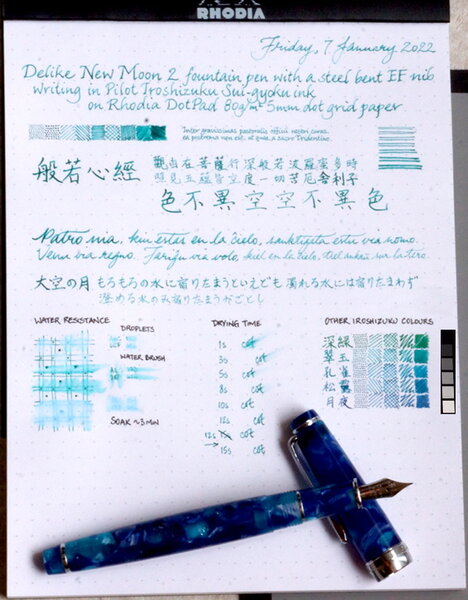 RHODIA
Friday, 7 January 2022
Delike New Moon 2 fountain pen with a steel bent EF nib
writing in Pilot Iroshizuku Sui-gyoku ink
on Rhodia DotPad 80g/m² 5mm dot grid paper
Inter gravissimas pastoralis officii nostri curas,
ea postrema non est, ut quæ a sacro Tridentino
般若心經
觀自在菩薩行深般若波羅蜜多時
照見五蘊皆空度一切苦厄舍利子
色不異空空不異色
Patro nia, kiu estas en la ĉielo, sanktigata estu via nomo.
Venu via regno. Fariĝu via volo, kiel en la ĉielo, tiel ankaŭ sur la tero.
大空の月 もろもろの水に宿りたまうといえども 濁れる水には宿りたまわず
澄める水のみ宿りたまうがごとし
WATER RESISTANCE
DROPLETS
WATER BRUSH
SOAK ~3 MIN
DRYING TIME
1s cat
3s cat
5s cat
8s cat
10s cat
12s cat
12s 15 cat
→ 15s cat
OTHER IROSHIZUKU COLOURS
深緑
翠玉
孔雀
松露
月夜